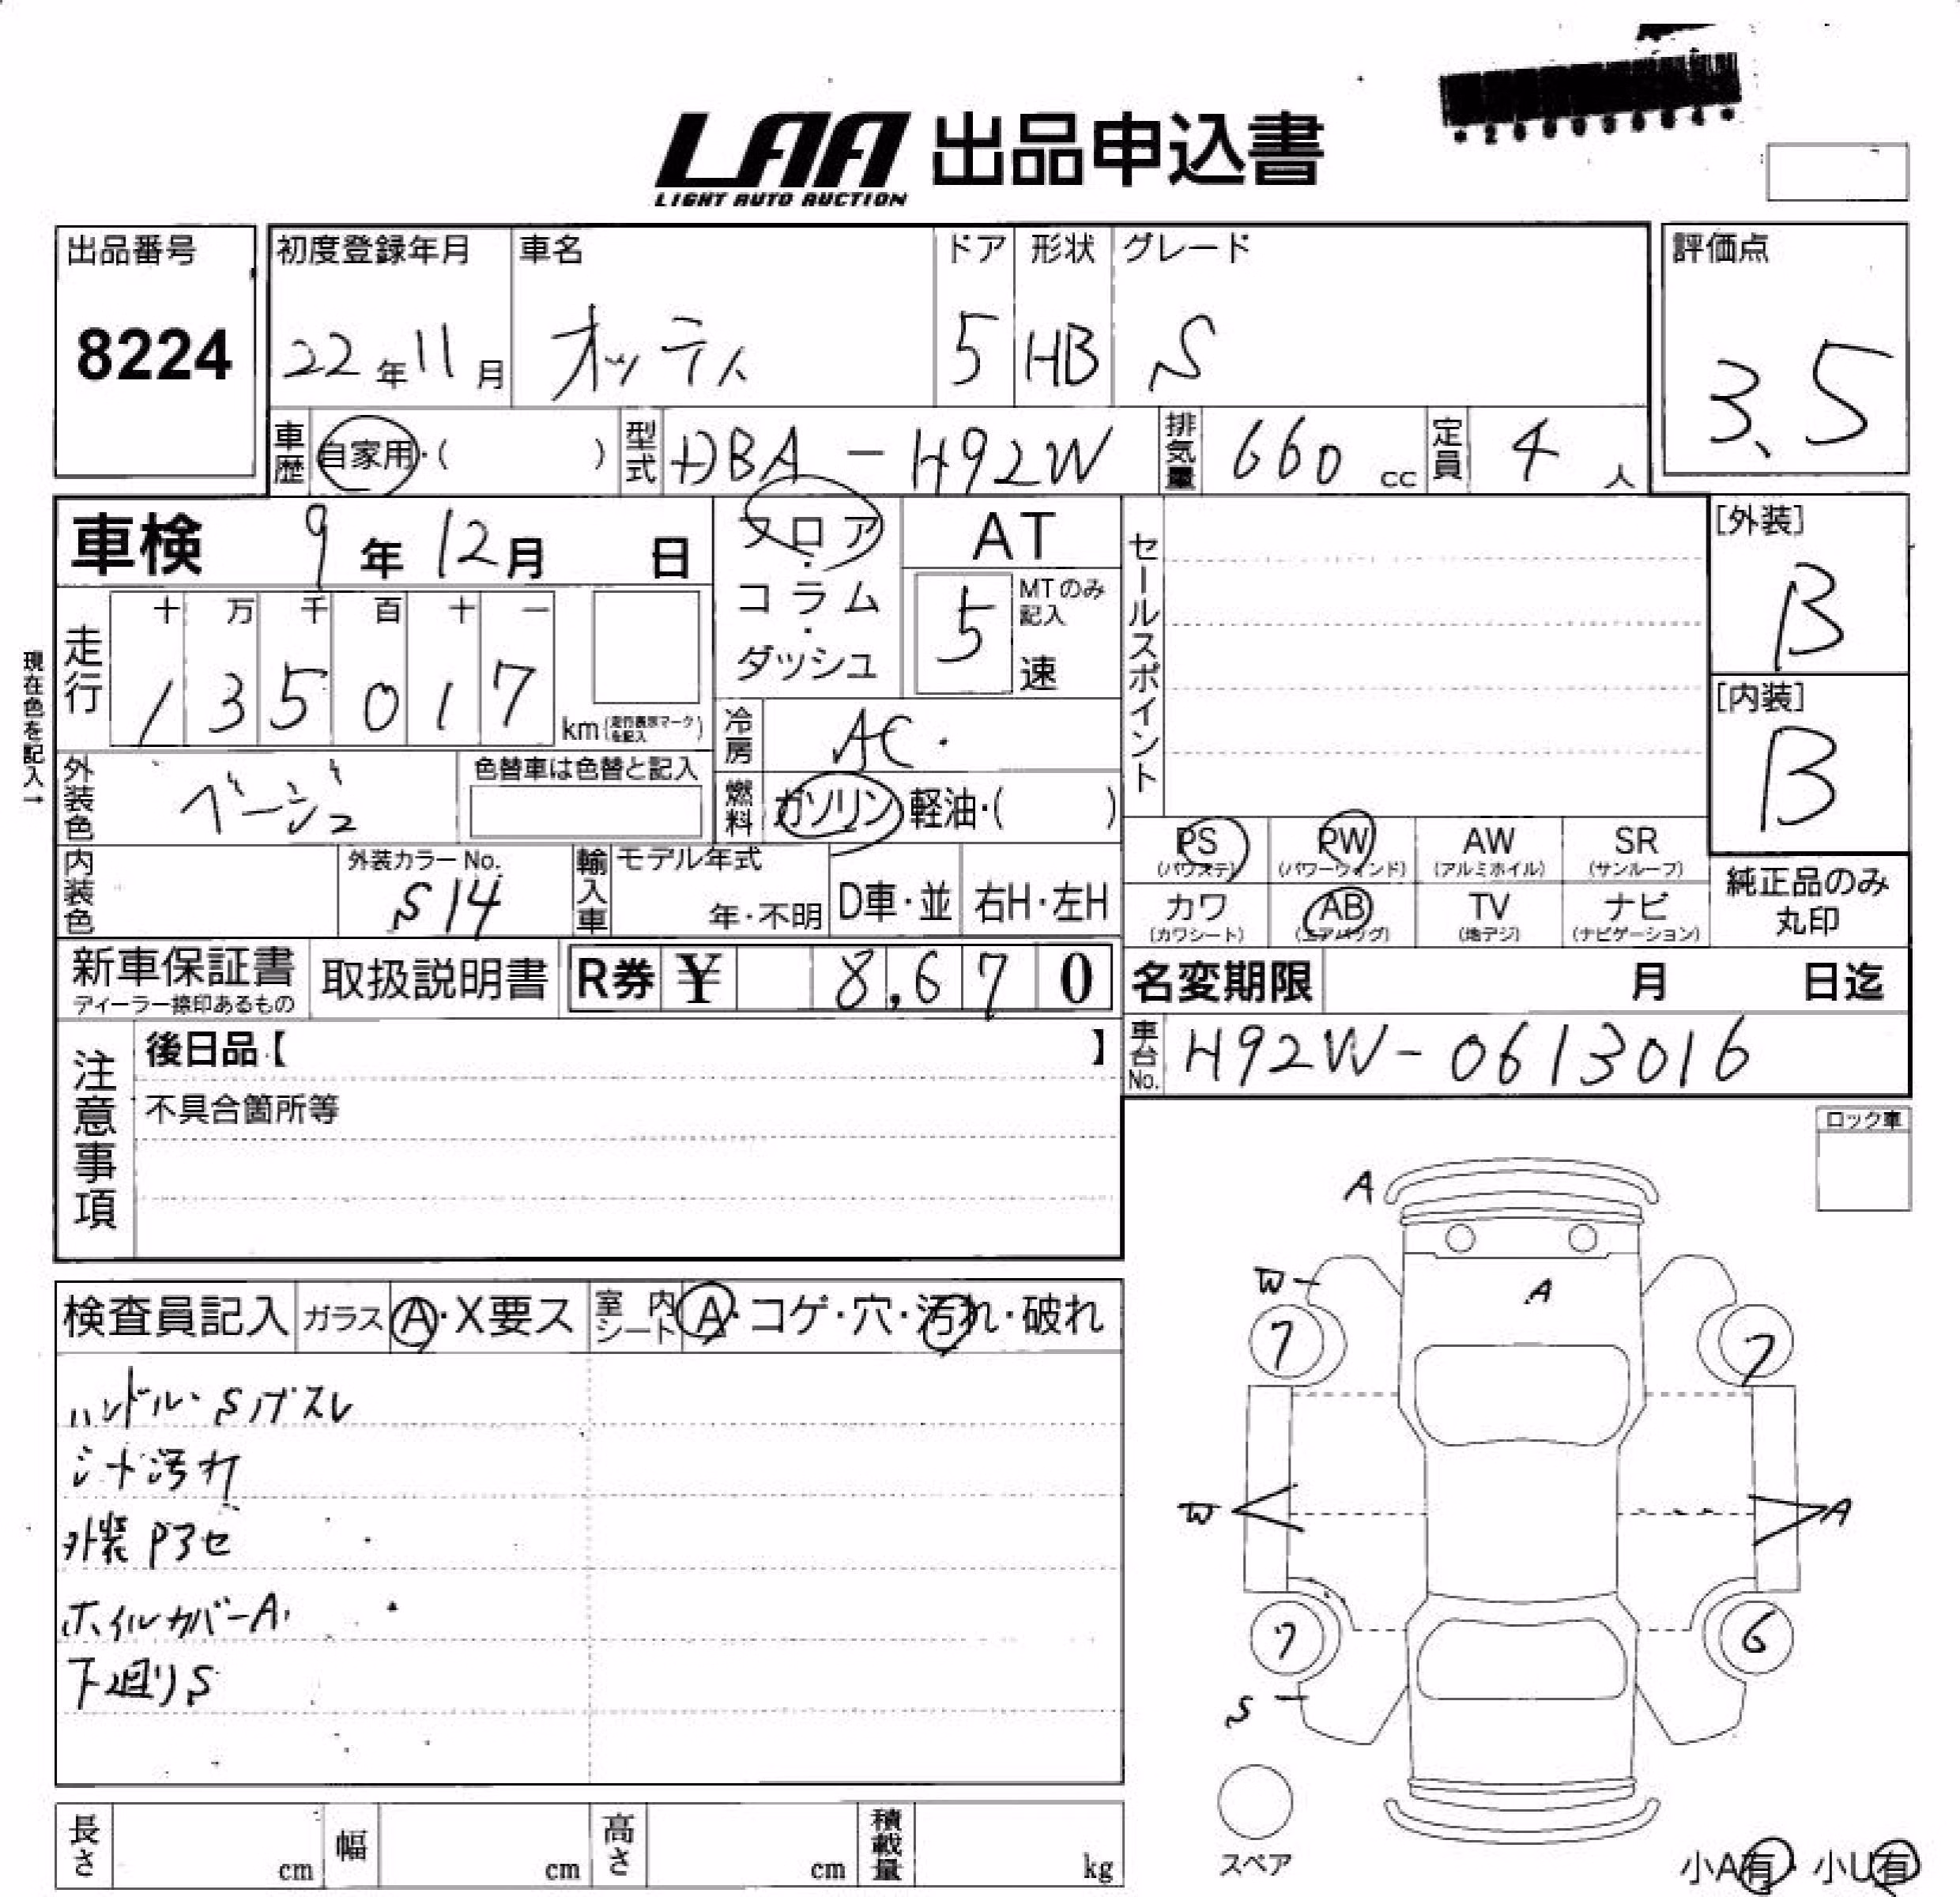 LAA 出品申込書
LIGHT AUTO AUCTION
出品番号 初度登録年月 車名 ドア 形状 グレード 評価点
8224 22年11月 オッティ 5 HB S 3.5
車歴 自家用・( ) 型式 DBA-H92W 排気量 660cc 定員 4人
車検 9年12月 日 フロア・コラム・ダッシュ AT 5 MTのみ記入 速 セールスポイント [外装] B
現在色を記入→
走行 十 万 千 百 十 一
1 3 5 0 1 7 km (走行表示マークを記入) 冷房 AC [内装] B
外装色 ベージュ 色替車は色替と記入 燃料 ガソリン 軽油・( )
PS (パワステ) PW (パワーウィンド) AW (アルミホイル) SR (サンルーフ)
内装色 外装カラーNo. S14 輸入車 モデル年式 年・不明 D車・並 右H・左H
カワ (カワシート) AB (エアバッグ) TV (地デジ) ナビ (ナビゲーション) 純正品のみ丸印
新車保証書 ディーラー捺印あるもの 取扱説明書 R券 ¥ 8,670 名変期限 月 日迄
車台No. H92W-0613016
注意事項 後日品【 】
不具合箇所等
ロック車
検査員記入 ガラス A・X要ス 室内シート A・コゲ・穴・汚れ・破れ
ハンドル・Sノブスレ
シート汚れ
外装Pアセ
ホイルカバーA
下廻りS
A
W A
7 7
W A
7 6
S
スペア
長さ cm 幅 cm 高さ cm 積載量 kg
小A有・小U有